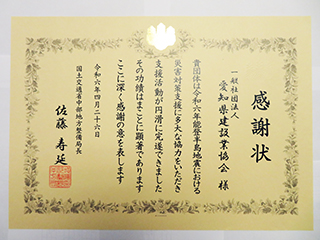 感謝状
一般社団法人
愛知県建設業協会 様
貴団体は令和六年能登半島地震における
災害対策支援に多大な協力をいただき
支援活動が円滑に完遂できました
その功績はまことに顕著であります
ここに深く感謝の意を表します
令和六年四月二十六日
国土交通省中部地方整備局長
佐藤寿延